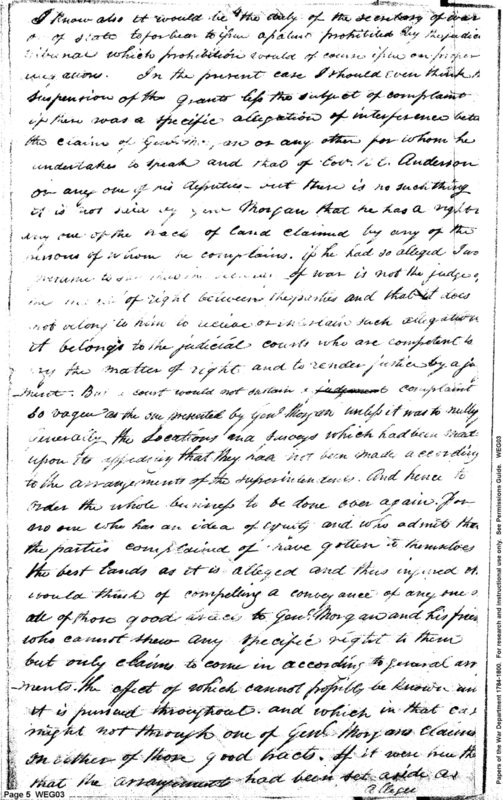 I know also it would be the duty of the secretary of war
or of state to forbear to issue a patent prohibited by the judicia
tribunal which prohibition would of course issue on proper
allegations. In the present case I should even think
suspension of the grants less the subject of complaint
if there was a specific allegation of interference betw
the claim of Genl Morgan or any other for whom he
undertakes to speak and that of Col. R. C. Anderson
or any one of his deputies - but there is no such thing
it is not said by Genl Morgan that he has a right
any one of the tracts of land claimed by any of the
persons of whom he complains. if he had so alleged I wo
presume to say of war is not the judge
of right between the parties and that it does
not belong to him to receive or entertain such allegation
it belongs to the judicial courts who are competent to
try the matter of right and to render justice by a ju
ment. But a court would not sustain a judgement complaint
so vague as the one presented by Genl Morgan unless it was to nullify
generally the Locations and Surveys which had been made
upon its appearing that they had not been made according
to the arrangements of the superintendents. And hence to
order the whole business to be done over again. For
no one who has an idea of equity and who admits that
the parties complained of have gotten to themselves
the best Lands as it is alleged and thus injured
would think of compelling a conveyance of any one
all of those good tracts to Genl Morgan and his frien
who cannot shew any specific right to them
but only claims to come in according to general arr
ments. the effect of which cannot possibly be known un
it is pursued throughout. and which in that cas
might not through one of Genl Morgans claims
on either of those good tracts. If it were true th
that the arrangement had been set aside as
allege
Page 5 WEG03
Papers of the War Department 1784-1800. For research and instructional use only. See Permissions Guide. WEG03